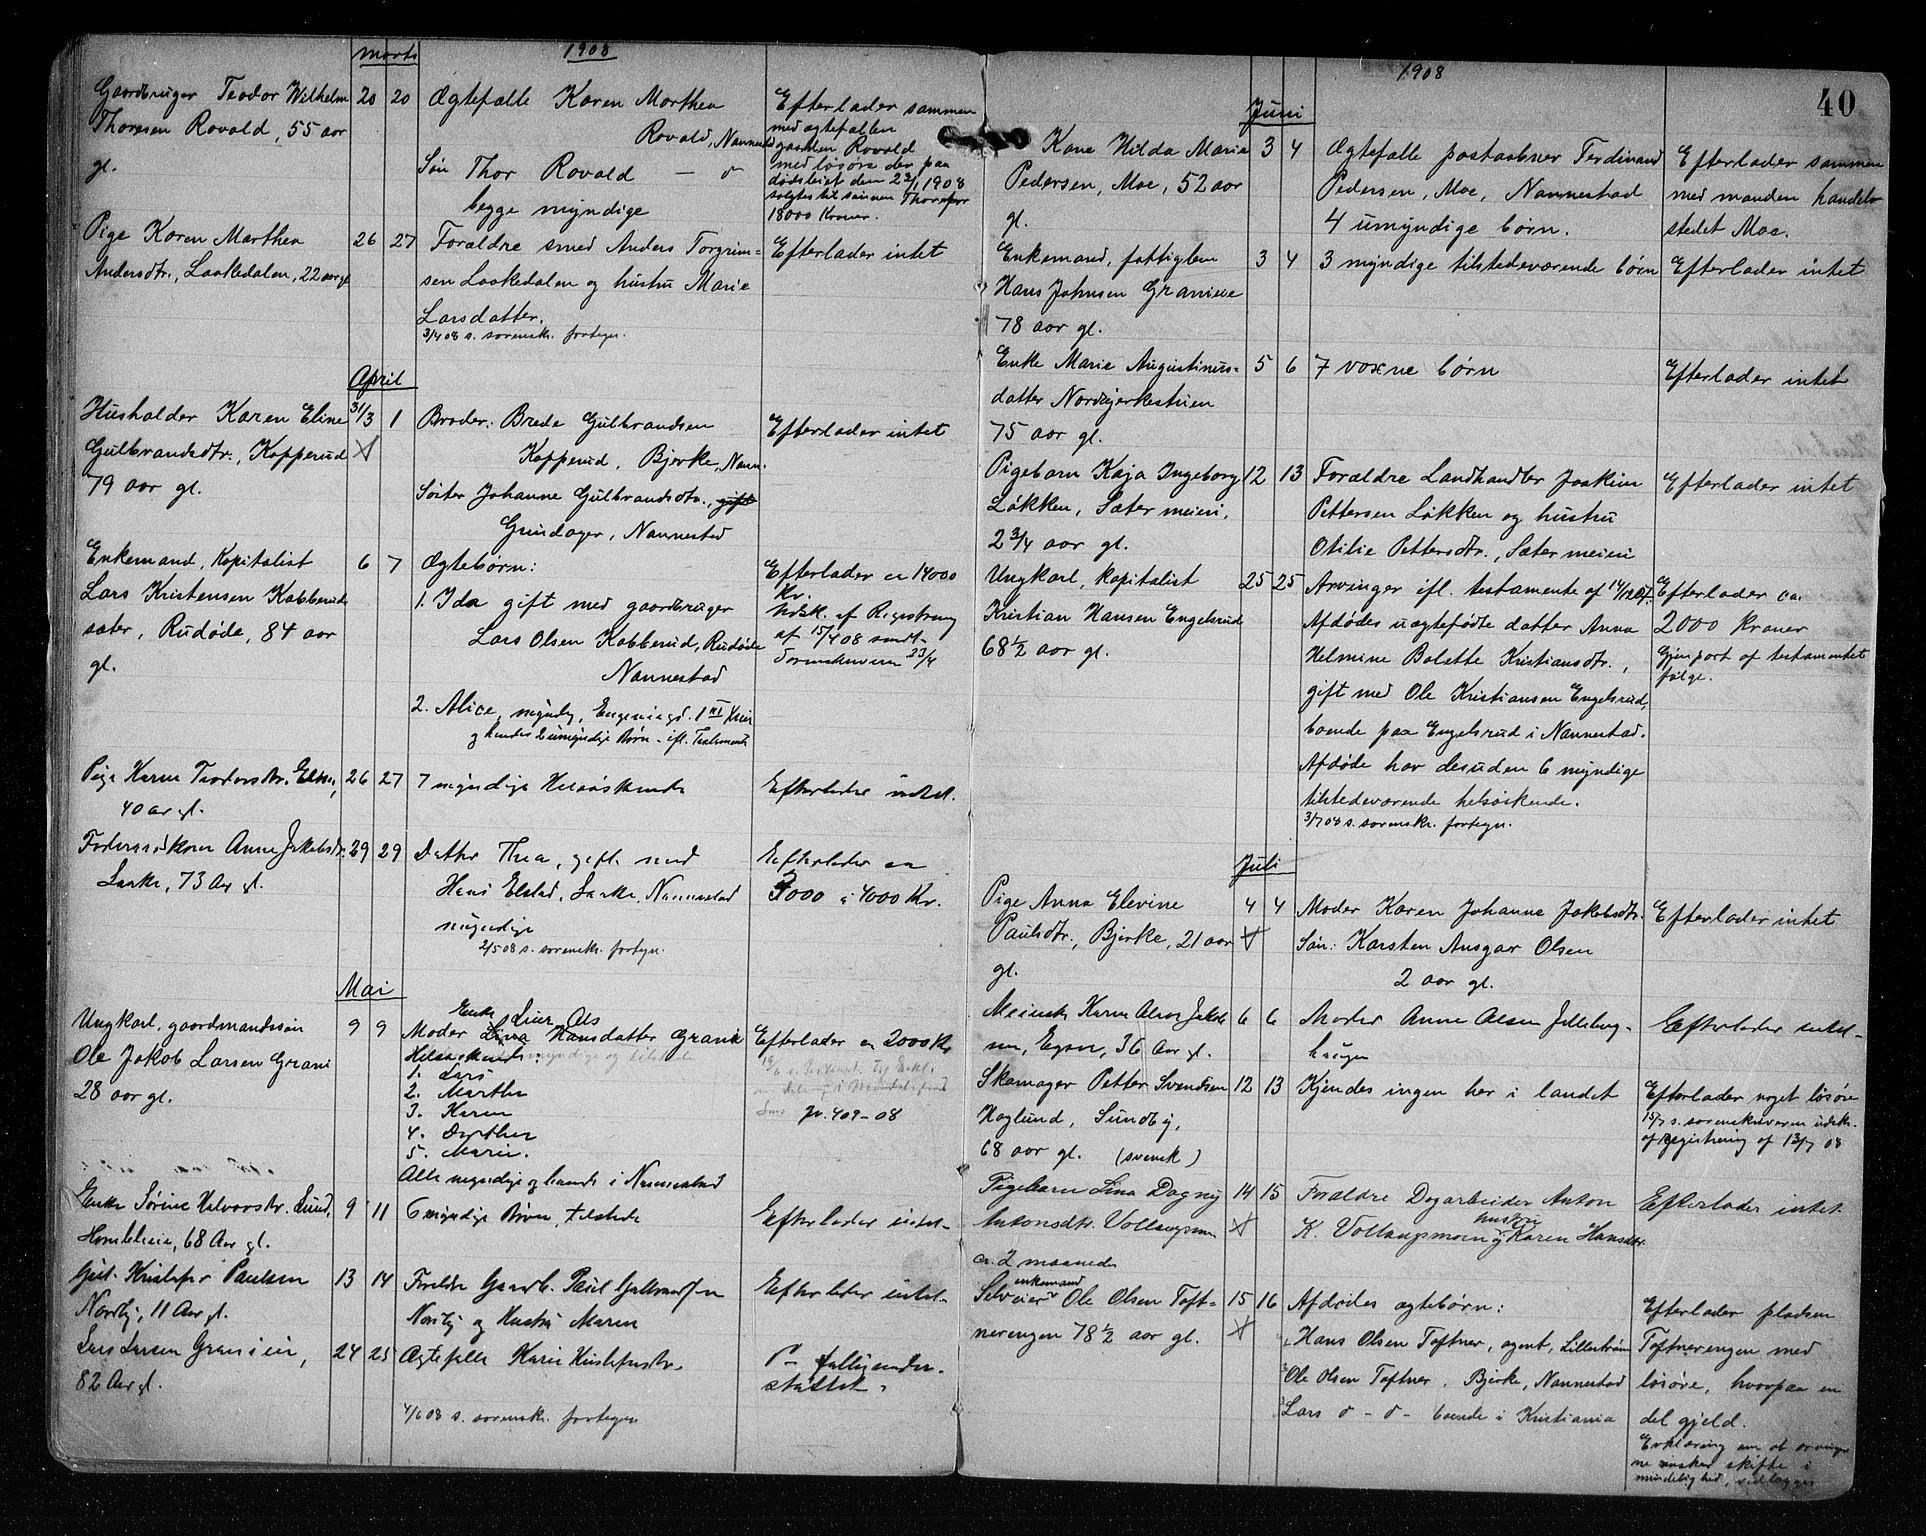 1908
Marts
Gaardbruger Teodor Wilhelm
Thoresen Rovald, 55 aar
gl.
20 20
Ægtefælle Karen Marthea
Rovald, Nannestad
Søn Thor Rovald — o
begge myndige
Efterlader sammen
med ægtefællen
gaarden Rovald
med løsøre der paa
dødsleiet den 23/1 1908
solgtes til sønnen Thor for
18000 Kroner.
Pige Karen Marthea
Andersdtr., Laakedalen, 22 aar gl
26 27
Forældre smed Anders Torgrim-
sen Laakedalen og hustru Marie
Larsdatter.
3/4 08 s. sorenskr. fortegn.
Efterlader intet
April
Husholder Karen Eline
Gulbrandsdtr., Kopperud
79 aar gl.
31/3 1
Broder: Brede Gulbrandsen
Kopperud, Bjerke, Nann.
Søster Johanne Gulbrandsdtr., gift
Grundager, Nannestad
Efterlader intet
Enkemand, Kapitalist
Lars Kristensen Kabberud
sæter, Rudøde, 84 aar
gl.
6 7
Ægtebørn:
1. Ida gift med gaardbruger
Lars Olsen Kabberud, Rudøde
Nannestad
2. Alice, myndig,
og hendes 2 umyndige Børn - ifl. Testamente
Efterlader ca 14000
Kr.
Udsk. af Registrering
af 15/4 08 sendt
Sorenskriveren 23/4
Pige Karen Teodorsdtr.
40 aar gl.
26 27
7 myndige Helsøskende
Efterlader intet.
Anne Jakobsdtr.
Laake, 73 Aar gl.
29 29
Datter Thea, gift med
Hans Elstad, Laake, Nannestad
myndige
2/5 08 s. sorenskr. fortegn.
Efterlader ca
3000 à 4000 Kr.
Mai
Ungkarl, gaardmandssøn
Ole Jakob Larsen Grani
28 aar gl.
9 9
Enke
Moder Lina Hansdatter Grani
Helsøskende:
1. Lars
2. Marthe
3. Karen
4. Dorthea
5. Marie.
Alle myndige og boende i Nannestad
Efterlader ca 2000 Kr
Jv. 409-08
Enke Sørine Halvorsdtr. Lund,
Homleie, 68 Aar gl.
9 11
6 myndige Børn, tilstede
Efterlader intet
Gut Kristofer Paulsen
Nordby, 11 Aar gl.
13 14
Forældre Gaardb. Paul Gulbrandsen
Nordby og Hustru Maren
Efterlader intet
Lars Larsen Granieie,
82 Aar gl.
24 25
Ægtefælle Marie Kristofersdtr.
4/6 08 s. sorenskr. fortegn
fattigunder-
støttet.
1908
40
Juni
Kone Hilda Marie
Pedersen, Moe, 52 aar
gl.
3 4
Ægtefælle postaabner Ferdinand
Pedersen, Moe, Nannestad
4 umyndige børn.
Efterlader sammen
med manden handels-
stedet Moe.
Enkemand, fattiglem
Hans Johnsen Granieie
78 aar gl.
3 4
3 myndige tilstedeværende børn
Efterlader intet
Enke Marie Augustinus-
datter Nordbjerkestuen
75 aar gl.
5 6
7 voxne børn
Efterlader intet
Pigebarn Kaja Ingeborg
Løkken, Sæter meieri.
2 3/4 aar gl.
12 13
Forældre Landhandler Joakim
Pettersen Løkken og hustru
Otilie Pettersdtr., Sæter meieri
Efterlader intet
Ungkarl, kapitalist
Kristian Hansen Engelsrud
68 1/2 aar gl.
25 25
Arvinger ifl. testamente af 14/12 07.
Afdødes uægtefødte datter Anna
Helmine Bolette Kristiansdtr.,
gift med Ole Kristiansen Engelsrud,
boende paa Engelsrud i Nannestad.
Afdøde har desuden 6 myndige
tilstedeværende helsøskende.
3/7 08 s. sorenskr. fortegn.
Efterlader ca.
2000 kroner
Gjenpart af testamentet
følge.
Juli
Pige Anna Elevine
Paulsdtr., Bjerke, 21 aar
gl.
4 4
Moder Karen Johanne Jakobsdtr.
Søn: Karsten Ansgar Olsen
2 aar gl.
Efterlader intet
Karen Alvine Jakob
sen, Egen, 36 Aar gl.
6 6
Moder Anne Olsen Jelleberg-
haugen
Efterlader intet
Skomager Petter Svendsen
Haglund, Sundby,
68 aar gl. (svensk)
12 13
Kjendes ingen her i landet
Efterlader noget løsøre
15/7 s. sorenskriveren udskr.
af registrering af 13/7 08
Pigebarn Lina Dagny
Antonsdtr. Vollaugmoen
ca. 2 maaneder
14 15
Forældre Dagarbeider Anton
K. Vollaugmoen og hustru Karen Hansdtr.
Efterlader intet.
Selveier enkemand Ole Olsen Toft-
nerengen 78 1/2 aar gl.
15 16
Afdødes ægtebørn:
1. Hans Olsen Toftner, agent, Lillestrøm
2 Ole Olsen Toftner, Bjerke, Nannestad
3 Lars o - o - boende i Kristiania
Efterlader pladsen
Toftnerengen med
løsøre, hvorpaa en
del gjeld.
Erklæring om at arvinger
ne ønsker skifte i
mindelighed, vedlægges